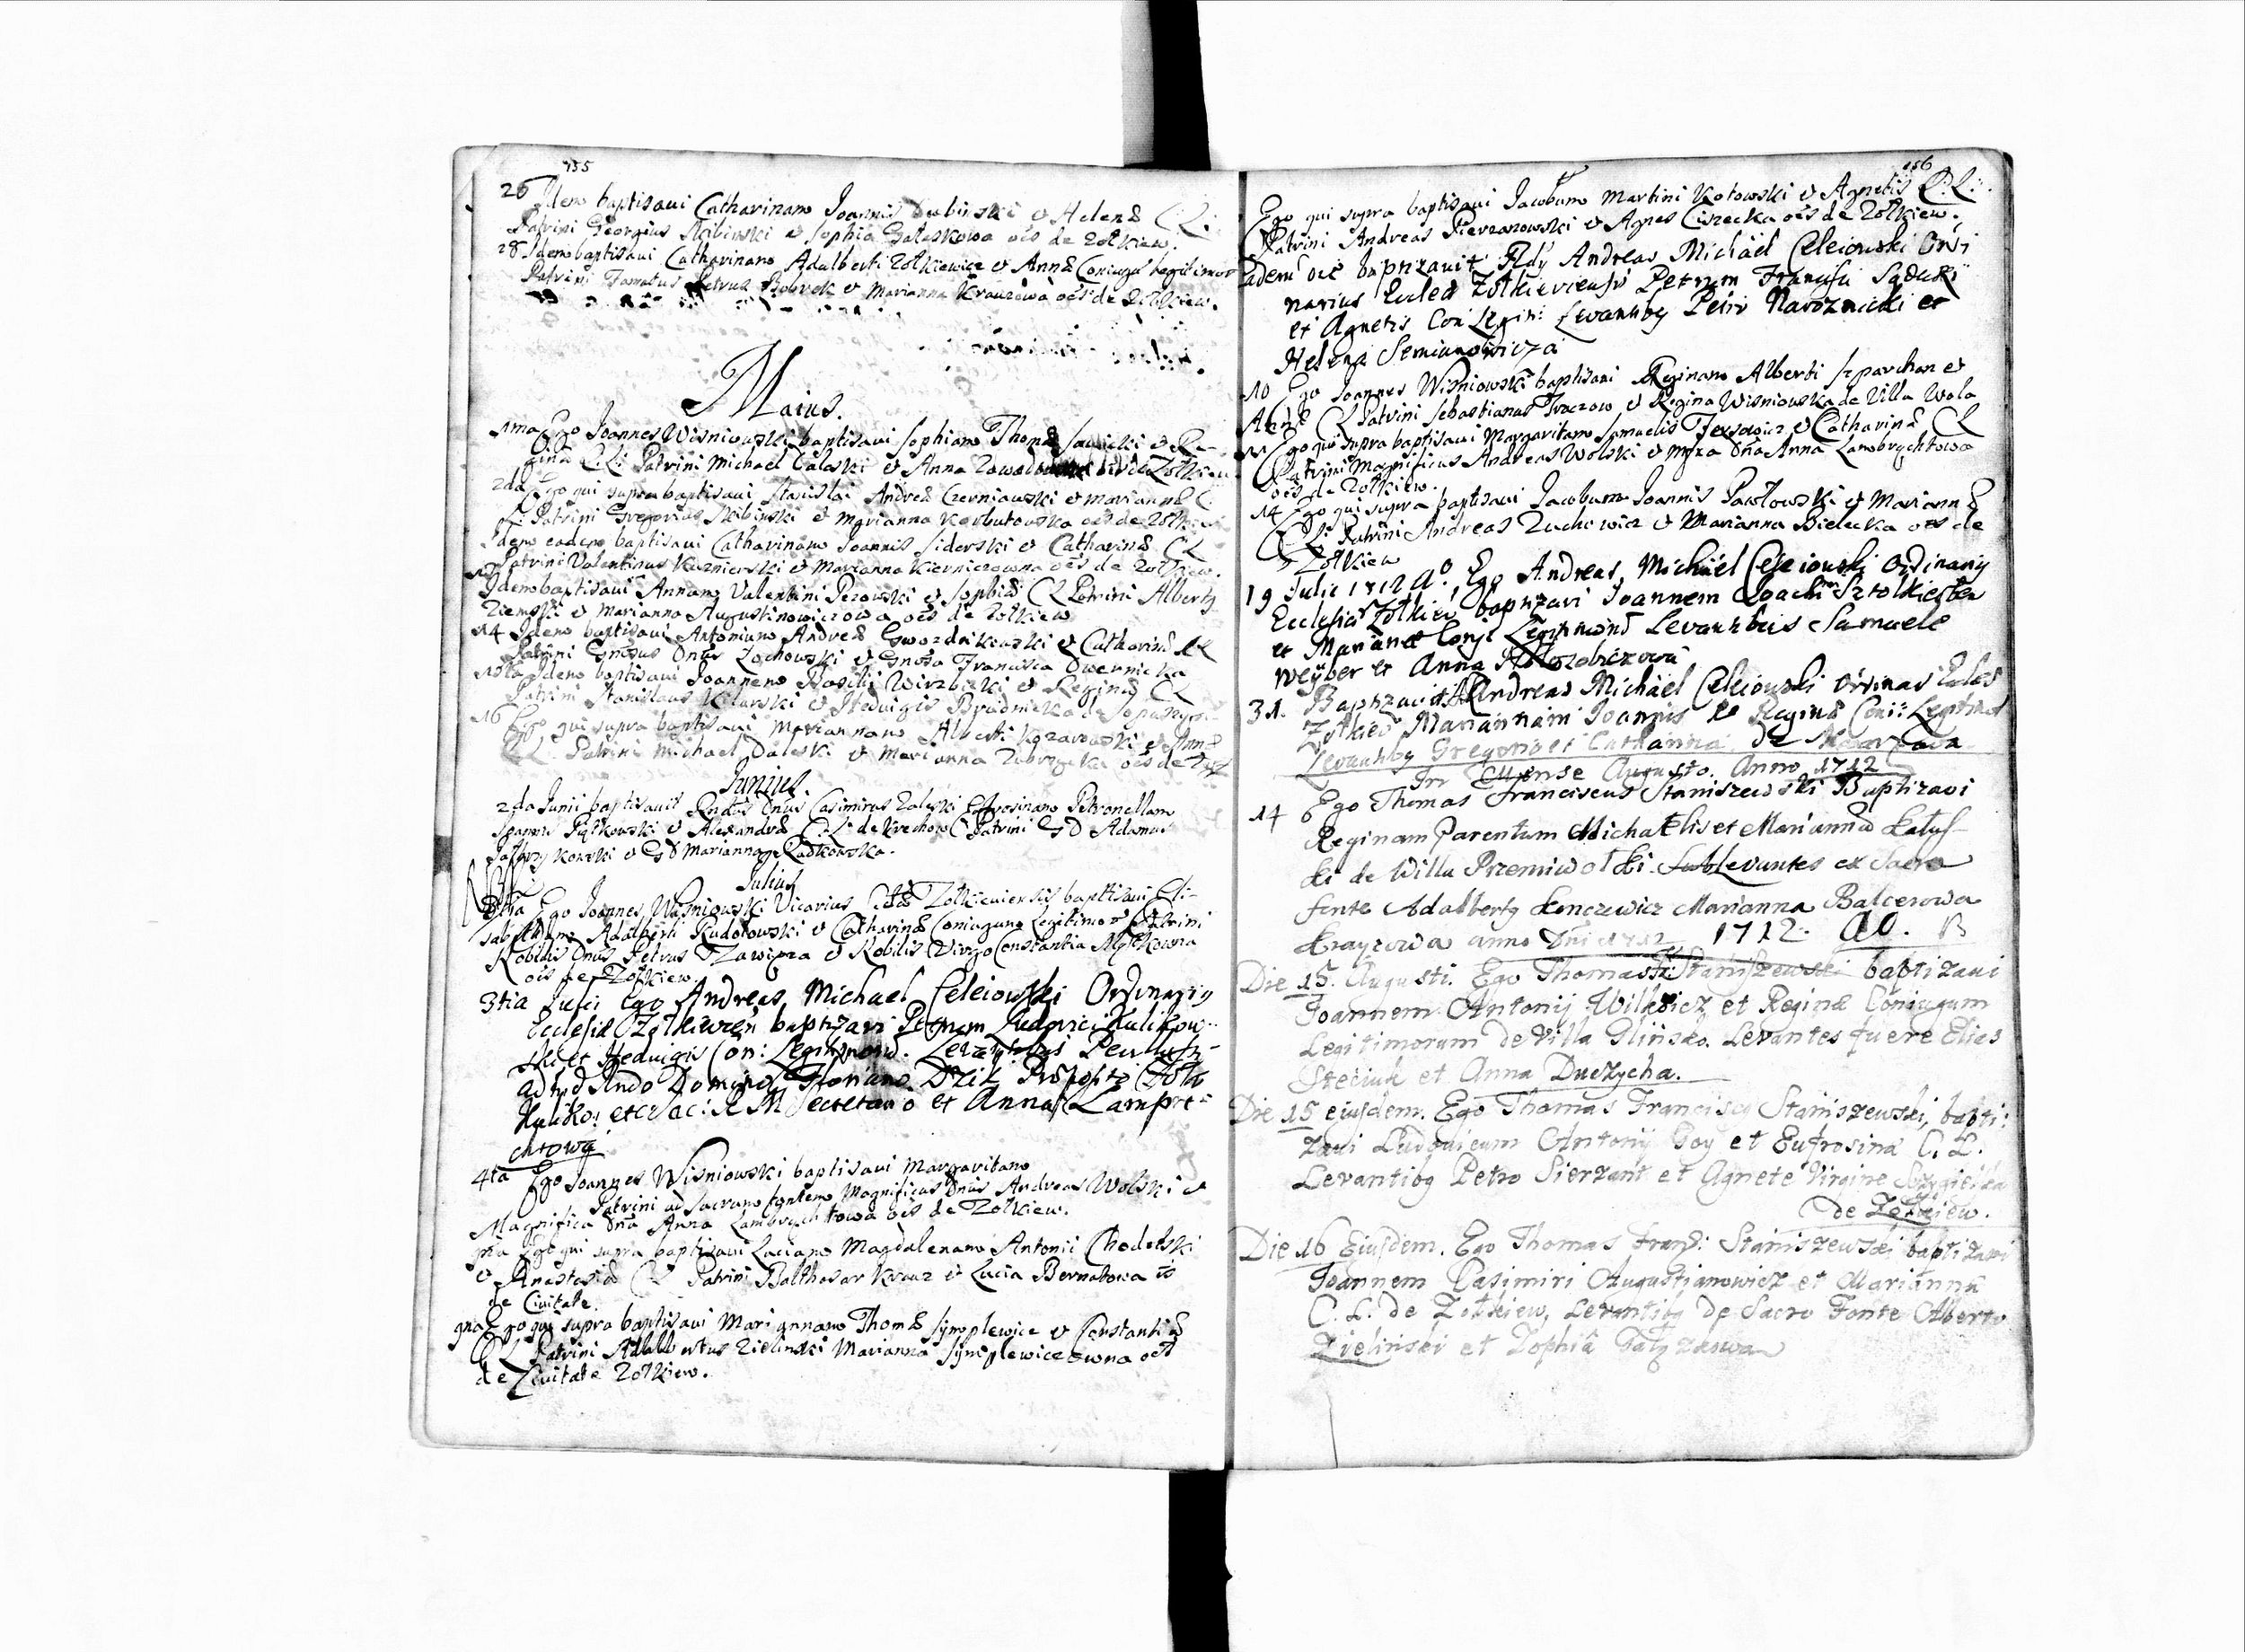 155
26 Idem baptisavi Catharinam Joannis Dubinski et Helenæ C: L:
Patrini Georgius Skibinski et Sophia Galeskowa oēs de Zołkiew.
28 Idem baptisavi Catharinam Adalberti Zołkiewicz et Annæ Coniugū Legitimor
Patrini Famatus Petrus Bobrek et Marianna Krauzowa oēs de Zołkiew.
Maius.
1ma Ego Joannes Wisniowski baptisavi Sophiam Thomæ Sawicki et Re-
ginæ C: L: Patrini Michael Galeski et Anna oēs de Zołkiew
2da Ego qui supra baptisavi Stanislai Andreæ Czerniawski et Mariannæ C:
L: Patrini Gregorius Skibinski et Marianna Korbutowska oēs de Zołkiew
Idem eadem baptisavi Catharinam Joannis Siderski et Catharinæ C L
Patrini Valentinus Kuzniarski et Marianna Kierniczowna oēs de Zołkiew.
Idem baptisavi Annam Valentini Pezowski et Sophiæ C L Patrini Albertus
Ziemski et Marianna Augustinowiczowa oēs de Zołkiew
14 Idem baptisavi Antonium Andreæ Gwozdzikowski et Catharinæ C L
Patrini Gnosus Dnus Zochowski et Gnosa Francisca Dwernicka
15ta Idem baptisavi Joannem Basilii Wirzbicki et Reginæ C L
Patrini Stanislaus Kilarski et Hedvigis Brudnicka de
16 Ego qui supra baptisavi Mariannam Alberti et Annæ
C L: Patrini Michael Daleski et Marianna Zubrzycka oēs de
Junius.
2da Junii baptisavit Rndus Dnus Casimirus Zaleski Eufrosinam Petronellam
Piątkowski et Alexandræ C: L: de Krechow Patrini G D Adamus
et G D Marianna Piątkowska.
Julius
Ego Joannes Wisniowski Vicarius Zołkieviensis baptisavi Eli-
sabetham Adalberti Rudołowski et Catharinæ Coniugum Legitimor Patrini
Nobilis Dnus Petrus Zawisza et Nobilis Virgo Constantia
oēs de Zołkiew.
3tia Julii Ego Andreas Michael Celeiowski Ordinariy
Ecclesiæ Zołkiewien baptizavi Ludovici Kulikow
ski et Hedvigis Con: Legitimorū. Levantibus Perillustri
Rndo Domino Floriano Dzik Præposito
Kuliko: etc: S: R M Secretario et Anna Lampre
chtową
4ta Ego Joannes Wisniowski baptisavi Margaritam
Patrini ad Sacrum fontem Magnificus Dnus Andreas Wolski et
Magnifica Dna Anna Lambrychtowa oēs de Zołkiew.
Ego qui supra baptisavi Luciam Magdalenam Antonii Chodelski
et Anastasiæ C L Patrini Balthasar Krauz et Lucia Bernatowa oēs
de Civitate.
9na Ego qui supra baptisavi Mariannam Thomæ Symplewicz et Constantiæ
C L Patrini Adalbertus Zielinski Marianna Symplewiczowna oēs
de Civitate Zołkiew.
156
Ego qui supra baptisavi Jacobum Martini Kotowski et Agnetis C: L:
Patrini Andreas Pierzanowski et Agnes Ciszecka oēs de Zołkiew.
Eadem die baptizavit Rdy Andreas Michael Celeiowski Ordi
narius Eccles Zołkieviensis Petrum Francisci
et Agnetis Con Legiti: Levantibus Petro Naroznicki et
Helena Semianowicza
10 Ego Joannes Wisniowski baptisavi Reginam Alberti Szparchan et
Annæ C L Patrini Sebastianus Tkaczow et Regina Wisniowska de Villa Wola
Ego qui supra baptisavi Margaritam Samuelis et Catharinæ C L
Patrini Magnificus Andreas Wolski et Mfca Dña Anna Lambrychtowa
oēs de Zołkiew.
14 Ego qui supra baptisavi Jacobum Joannis Pawłowski et Mariannæ
C L: Patrini Andreas Zuchowicz et Marianna Bielecka oēs de
Zołkiew
19 Julii 1712 Aº. Ego Andreas Michael Celeiowski Ordinariy
Ecclesiæ Zołkiew baptizavi Joannem
et Mariannæ Conji Legitimorū Levantibus Samuele
Weyber et Anna
31. Baptizavit Andreas Michael Celeiowski Ordinari Eccles
Zołkiew Mariannam Joannis et Reginæ Coni: Legitimor
Levantibg Gregorio et Catharina de
In Mense Augusto. Anno 1712
14 Ego Thomas Franciscus Staniszewski Baptizavi
Reginam Parentum Michaelis et Mariannæ Kałus-
ki de Willa Przemiwołki. Sublevantes ex Sacro
fonte Adalbertg Lenczewicz Marianna Balcerowa
Krayzowa anno Dni 1712 1712. A0. B
Die 15. Augusti. Ego Thomas Fr: Staniszewski baptizavi
Joannem Antonij Wilkowicz et Reginæ Coniugum
Legitimorum de Villa Glińsko. Levantes fuere Elias
Steciuk et Anna Duczycha.
Die 15 eiusdem. Ego Thomas Franciscg Staniszewski, bapti:
zavi Ludovicum Antonij Goy et Eufrosinæ C. L.
Levantibg Petro Sierzant et Agnete Virgine
de Zołkiew.
Die 16 Eiusdem. Ego Thomas Franc: Staniszewski baptizavi
Joannem Casimiri Augustianowicz et Mariannæ
C. L. de Zołkiew, Levantibg de Sacro Fonte Alberto
Zielinski et Zophia